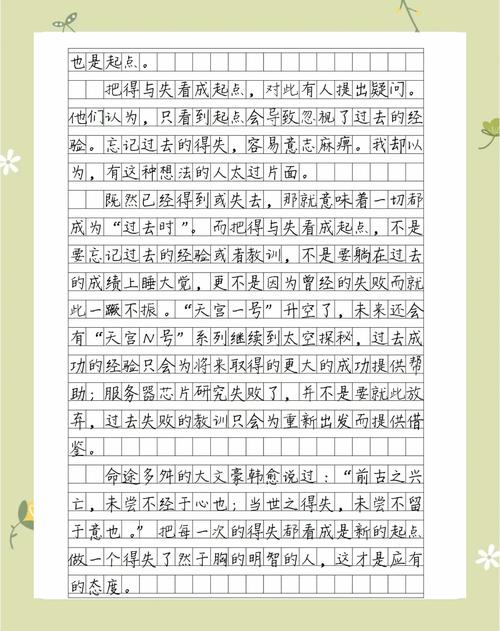 也是起点。
把得与失看成起点，对此有人提出疑问。
他们认为，只看到起点会导致忽视了过去的经
验。忘记过去的得失，容易意志麻痹。我却以
为，有这种想法的人太过片面。
既然已经得到或失去，那就意味着一切都
成为“过去时”。而把得与失看成起点，不是
要忘记过去的经验或者教训，不是要躺在过去
的成绩上睡大觉，更不是因为曾经的失败而就
此一蹶不振。“天宫一号”升空了，未来还会
有“天宫N号”系列继续到太空探秘，过去成
功的经验只会为将来取得的更大的成功提供帮
助；服务器芯片研究失败了，并不是要就此放
弃，过去失败的教训只会为重新出发而提供借
鉴。
命途多舛的大文豪韩愈说过：“前古之兴
亡，未尝不经于心也；当世之得失，未尝不留
于意也。”把每一次的得失都看成是新的起点
做一个得失了然于胸的明智的人，这才是应有
的态度。